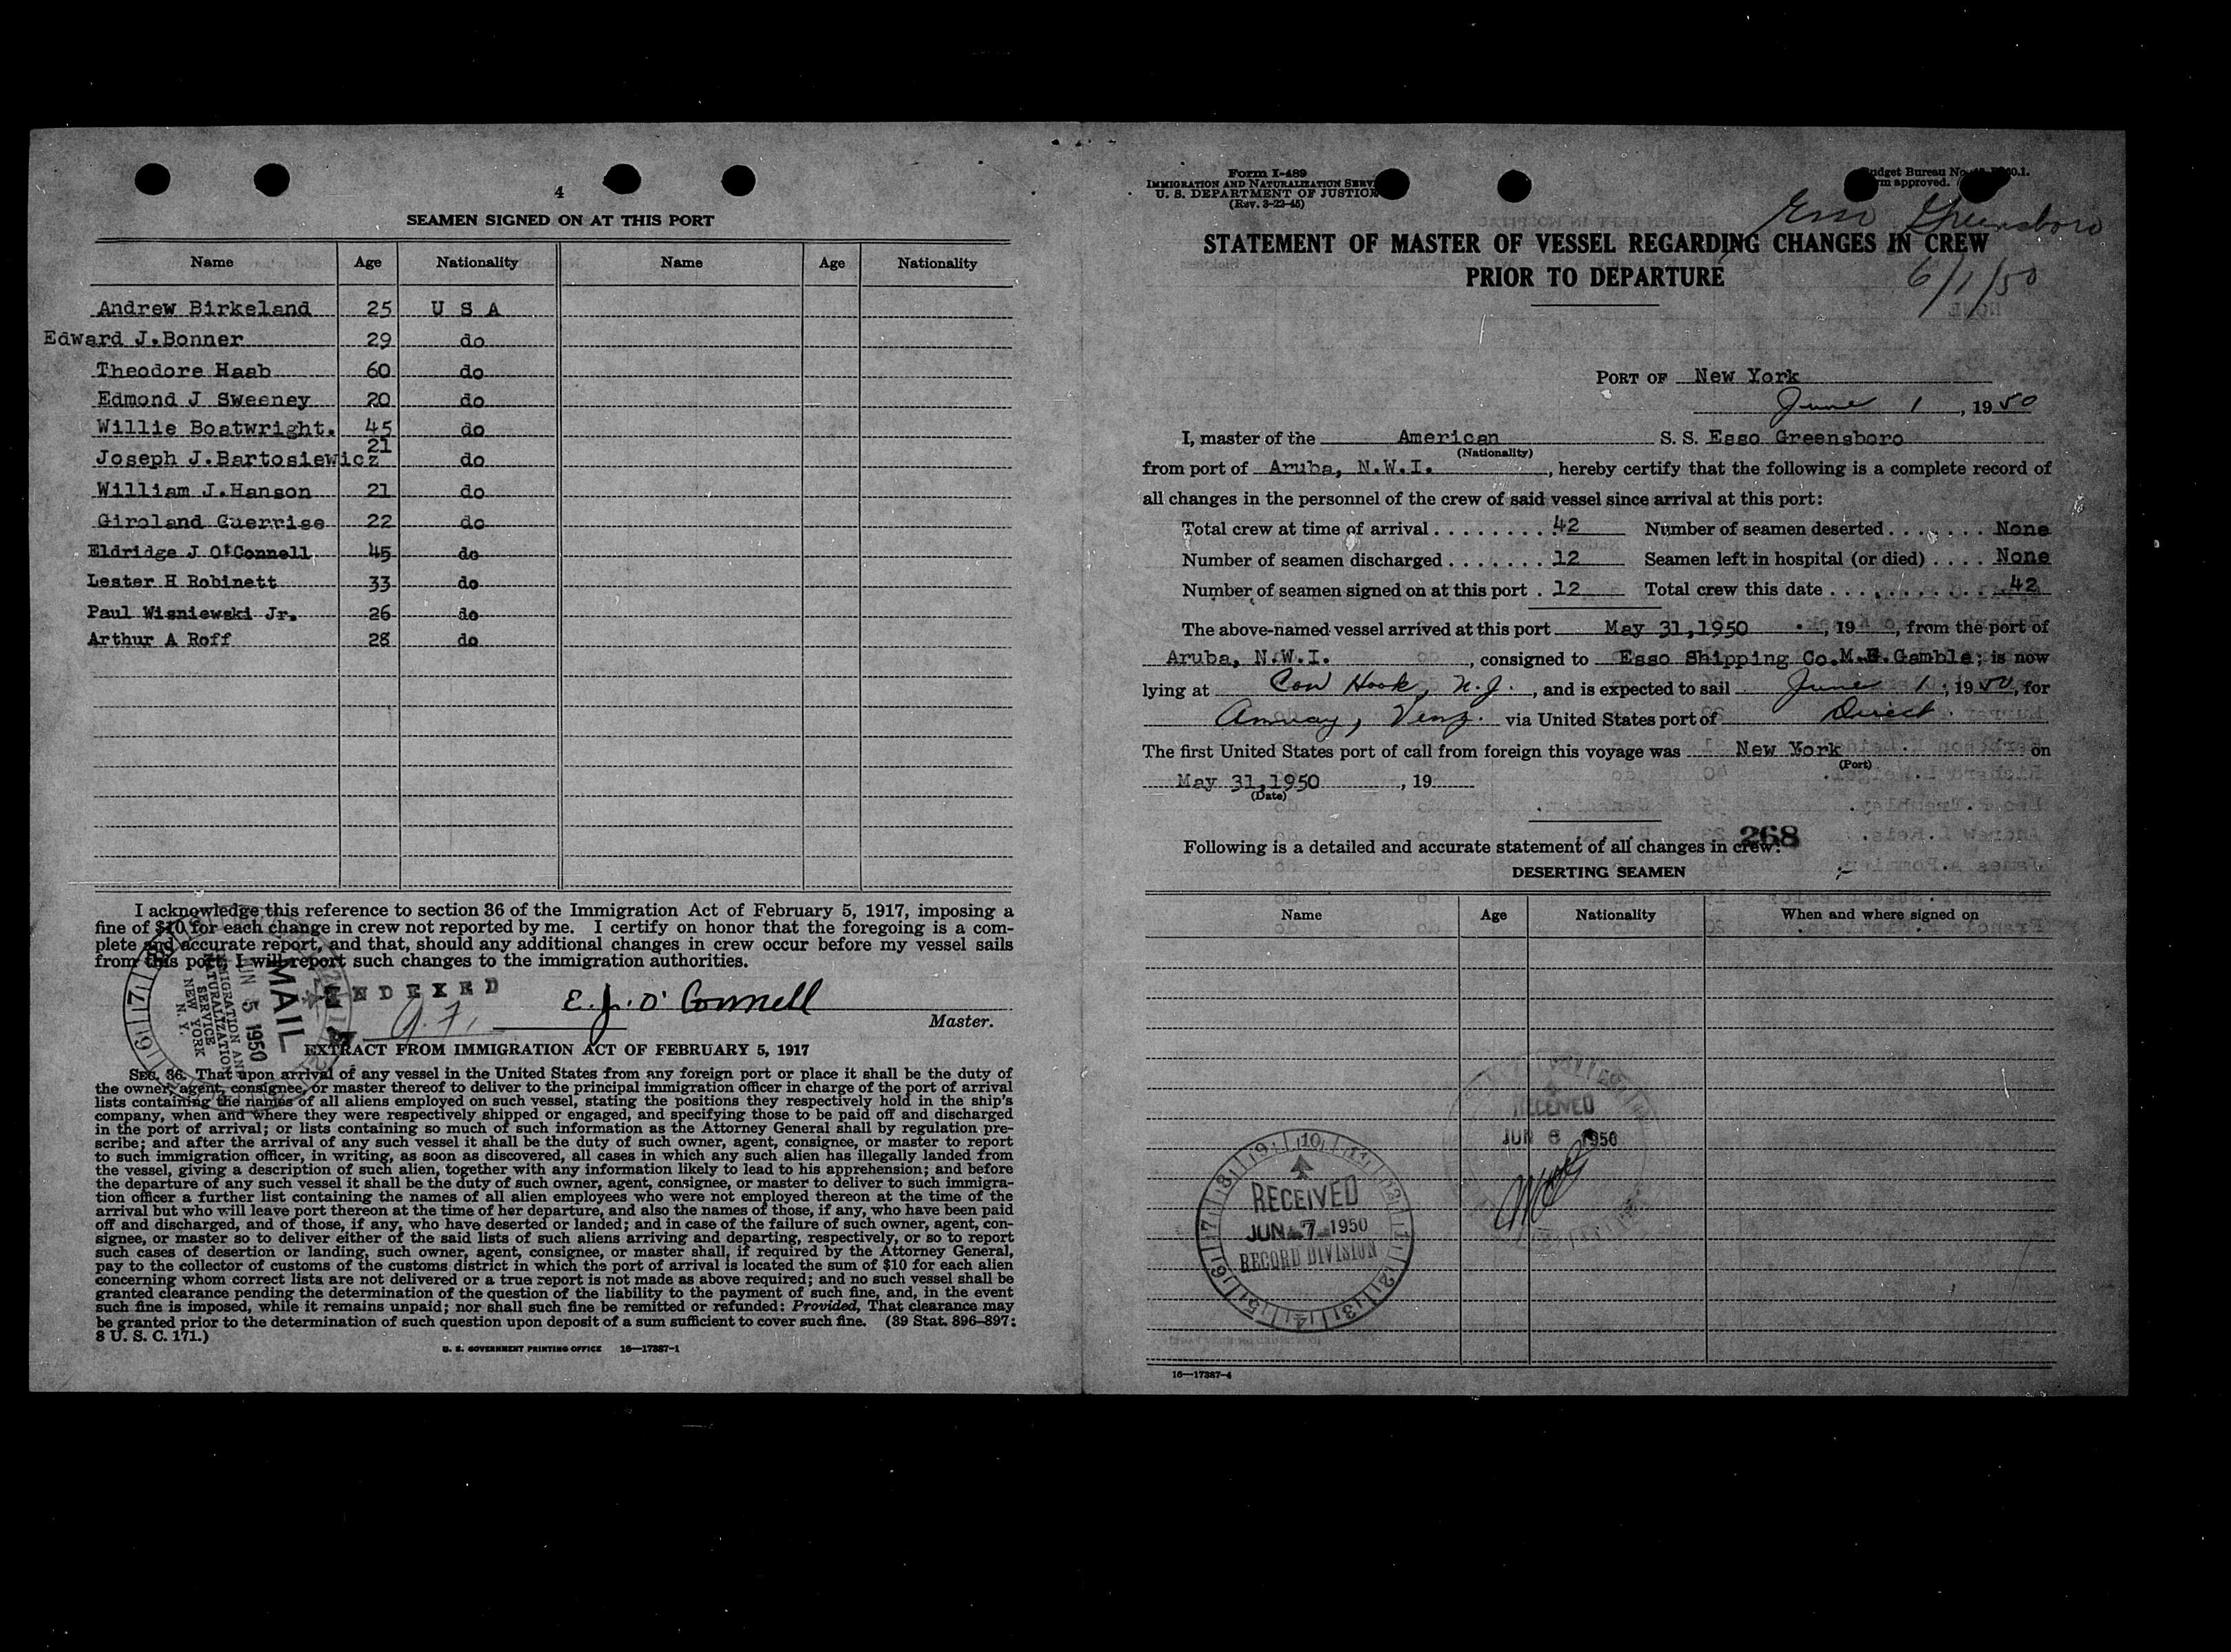 4
SEAMEN SIGNED ON AT THIS PORT
Name Age Nationality Name Age Nationality
Andrew Birkeland 25 U S A
Edward J.Bonner 29 do
Theodore Haab 60 do
Edmond J Sweeney 20 do
Willie Boatwright. 45 do
Joseph J.Bartosiewicz 21 do
William J.Hanson 21 do
Giroland Guerrise 22 do
Eldridge J O'Connell 45 do
Lester H Robinett 33 do
Paul Wisniewski Jr. 26 do
Arthur A Roff 28 do
I acknowledge this reference to section 36 of the Immigration Act of February 5, 1917, imposing a
fine of $10 for each change in crew not reported by me. I certify on honor that the foregoing is a com-
plete and accurate report, and that, should any additional changes in crew occur before my vessel sails
from this port, I will report such changes to the immigration authorities.
MAIL
JUN 5 1950
IMMIGRATION AND
NATURALIZATION
SERVICE
NEW YORK
N. Y.
INDEXED
E. J. O'Connell
Master.
EXTRACT FROM IMMIGRATION ACT OF FEBRUARY 5, 1917
SEC. 36. That upon arrival of any vessel in the United States from any foreign port or place it shall be the duty of
the owner, agent, consignee, or master thereof to deliver to the principal immigration officer in charge of the port of arrival
lists containing the names of all aliens employed on such vessel, stating the positions they respectively hold in the ship's
company, when and where they were respectively shipped or engaged, and specifying those to be paid off and discharged
in the port of arrival; or lists containing so much of such information as the Attorney General shall by regulation pre-
scribe; and after the arrival of any such vessel it shall be the duty of such owner, agent, consignee, or master to report
to such immigration officer, in writing, as soon as discovered, all cases in which any such alien has illegally landed from
the vessel, giving a description of such alien, together with any information likely to lead to his apprehension; and before
the departure of any such vessel it shall be the duty of such owner, agent, consignee, or master to deliver to such immigra-
tion officer a further list containing the names of all alien employees who were not employed thereon at the time of the
arrival but who will leave port thereon at the time of her departure, and also the names of those, if any, who have been paid
off and discharged, and of those, if any, who have deserted or landed; and in case of the failure of such owner, agent, con-
signee, or master so to deliver either of the said lists of such aliens arriving and departing, respectively, or so to report
such cases of desertion or landing, such owner, agent, consignee, or master shall, if required by the Attorney General,
pay to the collector of customs of the customs district in which the port of arrival is located the sum of $10 for each alien
concerning whom correct lists are not delivered or a true report is not made as above required; and no such vessel shall be
granted clearance pending the determination of the question of the liability to the payment of such fine, and, in the event
such fine is imposed, while it remains unpaid; nor shall such fine be remitted or refunded: Provided, That clearance may
be granted prior to the determination of such question upon deposit of a sum sufficient to cover such fine. (39 Stat. 896–897;
8 U. S. C. 171.)
U. S. GOVERNMENT PRINTING OFFICE 16—17387-1
Form I-489
IMMIGRATION AND NATURALIZATION SERV
U. S. DEPARTMENT OF JUSTICE
(Rev. 3-22-45)
udget Bureau No.
m approved.
Esso Greensboro
STATEMENT OF MASTER OF VESSEL REGARDING CHANGES IN CREW
PRIOR TO DEPARTURE
6/1/50
PORT OF New York
June 1, 1950
I, master of the American S. S. Esso Greensboro
(Nationality)
from port of Aruba, N.W.I., hereby certify that the following is a complete record of
all changes in the personnel of the crew of said vessel since arrival at this port:
Total crew at time of arrival 42 Number of seamen deserted None
Number of seamen discharged 12 Seamen left in hospital (or died) None
Number of seamen signed on at this port 12 Total crew this date 42
The above-named vessel arrived at this port May 31,1950, 19, from the port of
Aruba, N.W.I., consigned to Esso Shipping Co. Gamble; is now
lying at Con Hook, N.J., and is expected to sail June 1, 1950, for
Amuay, Venz. via United States port of Direct.
The first United States port of call from foreign this voyage was New York on
(Port)
May 31,1950, 19
(Date)
268
Following is a detailed and accurate statement of all changes in crew:
DESERTING SEAMEN
Name Age Nationality When and where signed on
RECEIVED
JUN 6 1950
RECEIVED
JUN 7 1950
RECORD DIVISION
16—17387-4